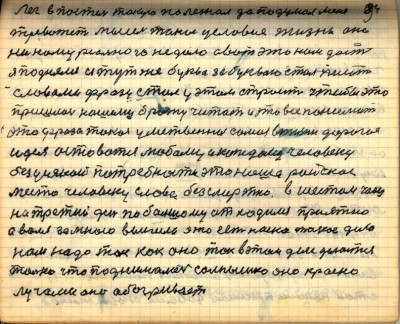 Лег в постель такую полежал да подумал меня
тревожит мысль такая условие жизнь она
ни кому реально не дала а вот это нам даст
я поднялся и тут же буква за буквою стал писать
словами фразу стал у этом строить чтобы это
пришлому нашему брату читать и тоже понимать
это фраза такая умственная самая в жизни дорогая
идея остаться любому и каждому человеку
без усякой потребности это наше райское
место человеку слава бессмертно. в шестом часу
на третий ден по большому от ходил приятно
а воля за много вышела это ест наше такое дело
нам надо так как оно так в этом деле делается
только что поднималася солнышко оно красно
лучами оно обогривает